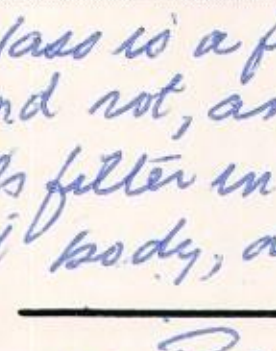 lass is a f
nd rot, an
ls filter in
body, a